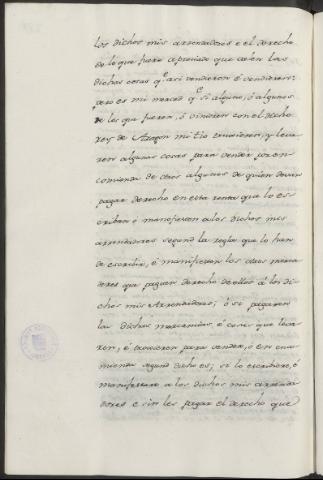 los dichos mis arrendadores e el derecho
de lo que fuere apreciado que valen las
dichas cosas q.e asi vendieren ó vendieren:
pero es mi merced q.e si alguno, ó algunos
de los que fueren, ó vinieren con el dicho
rey de Aragon mi tio truxieren, y leva
ren algunas cosas para vender por en
comienda de otros algunos de quien devan
pagar derecho en esta renta que lo es
criban ó manifiesten a los dichos mis
arrendadores segund la regla que lo han
de escribir, é manifiesten los otros merca
deres que paguen derecho de ellas á los di
chos mis Arrendadores; ó si pagaren
las dichas mercancias, é cosas que leva
ren, é truxieren para vender, ó en enco
mienda segund dicho es; si lo escribiere, ó
manifestare a los dichos mis arrenda
dores e sin les pagar el derecho que